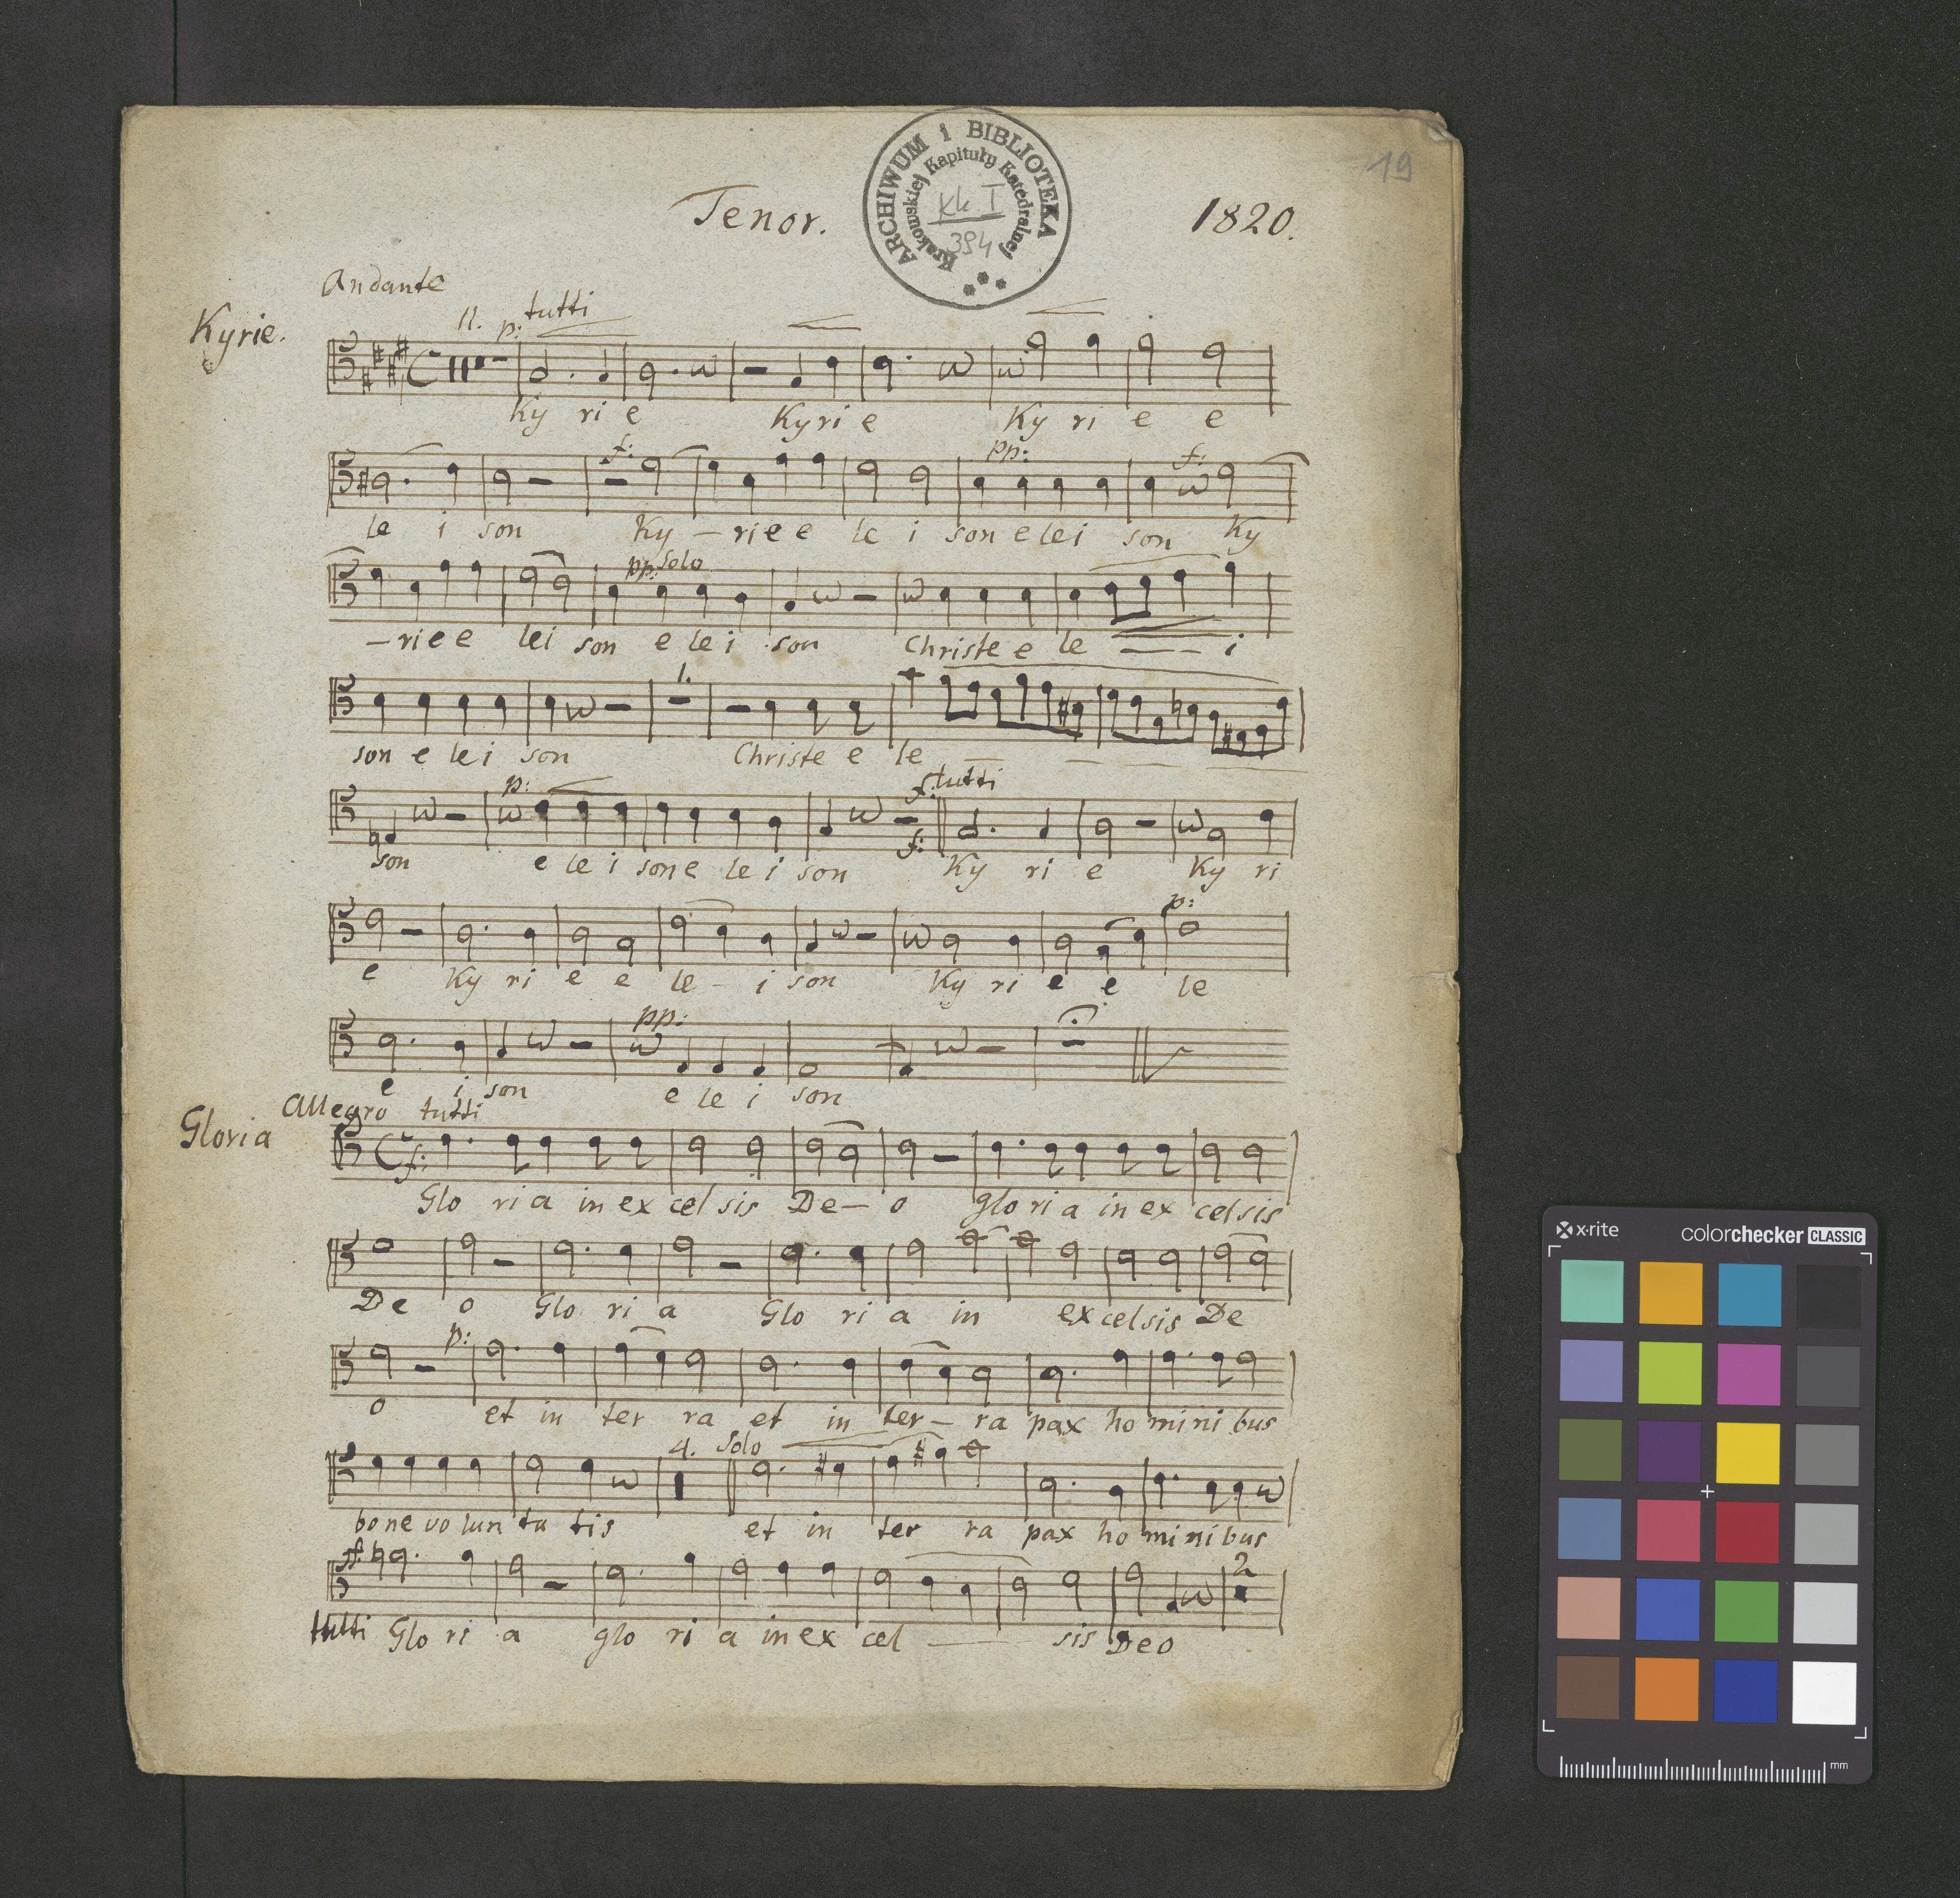 19
ARCHIWUM i BIBLIOTEKA
Krakowskiej Kapituły Katedralnej
Kk I
394
Tenor.
1820.
Andante
Kyrie.
11. p: tutti
Ky ri e Kyri e Ky ri e e
f: pp: f:
le i son Ky – rie e le i son e lei son Ky
pp: Solo
– rie e lei son e le i son Christe e le – – – i
1.
son e le i son Christe e le – – – –
p: f: tutti
f:
son e le i son e le i son Ky ri e Ky ri
p:
e Ky ri e e le - i son Ky ri e e le
pp:
e i son e le i son
Allegro tutti
Gloria
f:
Glo ri a in ex cel sis De – o glo ri a in ex cel sis
De o Glo ri a Glo ri a in ex cel sis De
p:
o et in ter ra et in ter – ra pax ho mi ni bus
4. Solo
bo ne vo lun ta tis et in ter ra pax ho mi ni bus
ff: 2
tutti Glo ri a glo ri a in ex cel – sis Deo
x·rite
colorchecker CLASSIC
mm